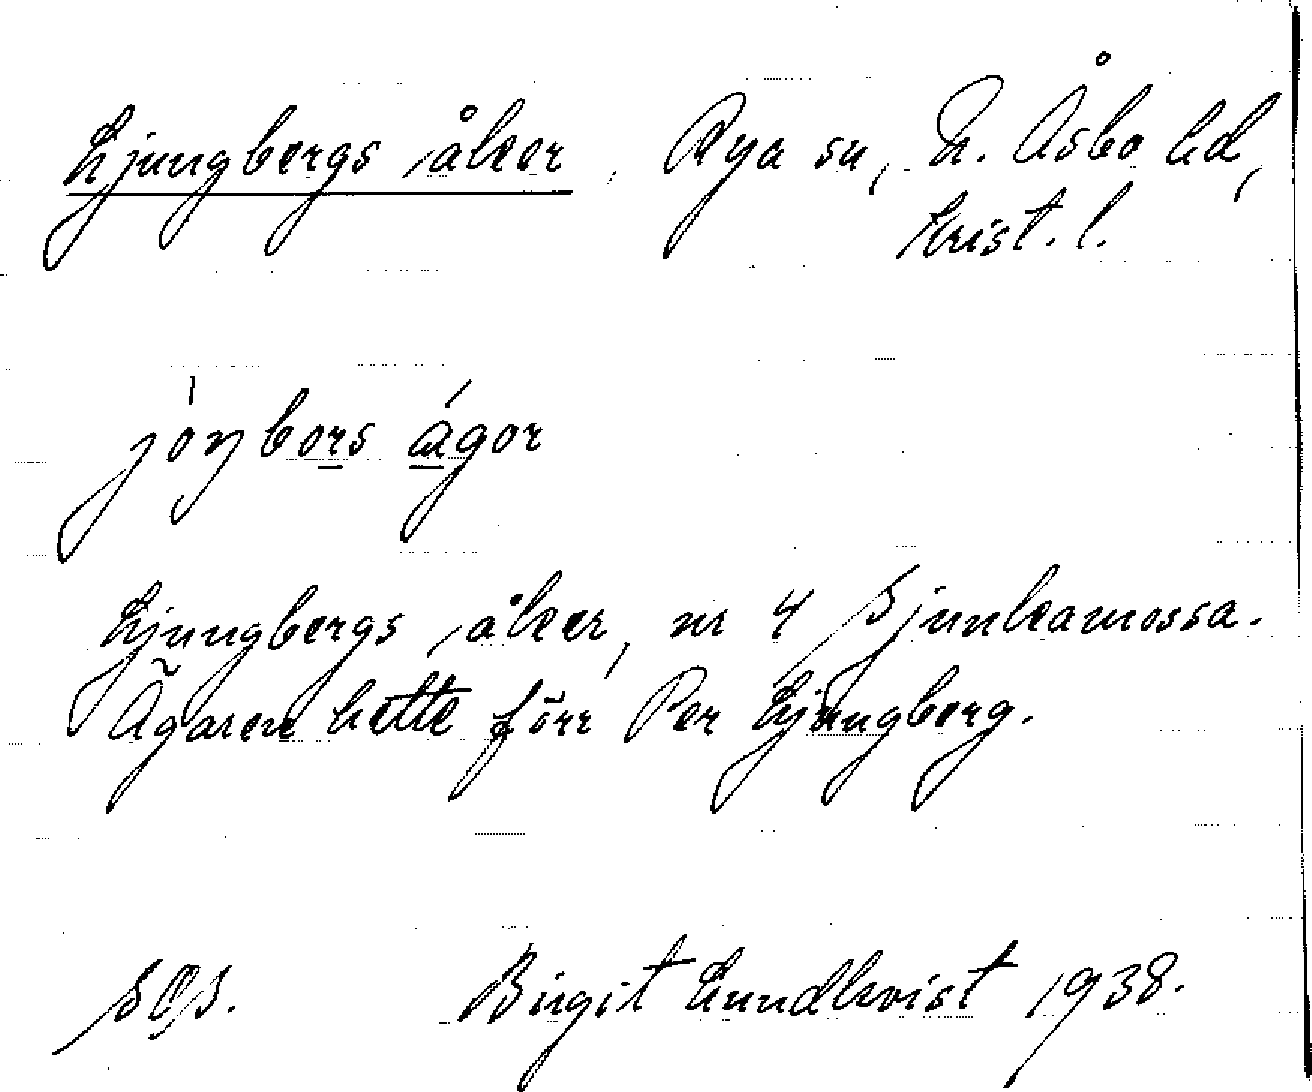 Ljungbergs åker, Rya sn, N. Åsbo hd,
Krist. l.
jóŋbors ágor
Ljungbergs åker, nr 4 Sjunkamossa.
Ägaren hette förr Per Ljungberg.
SOJ. Birgit Lundkvist 1938.